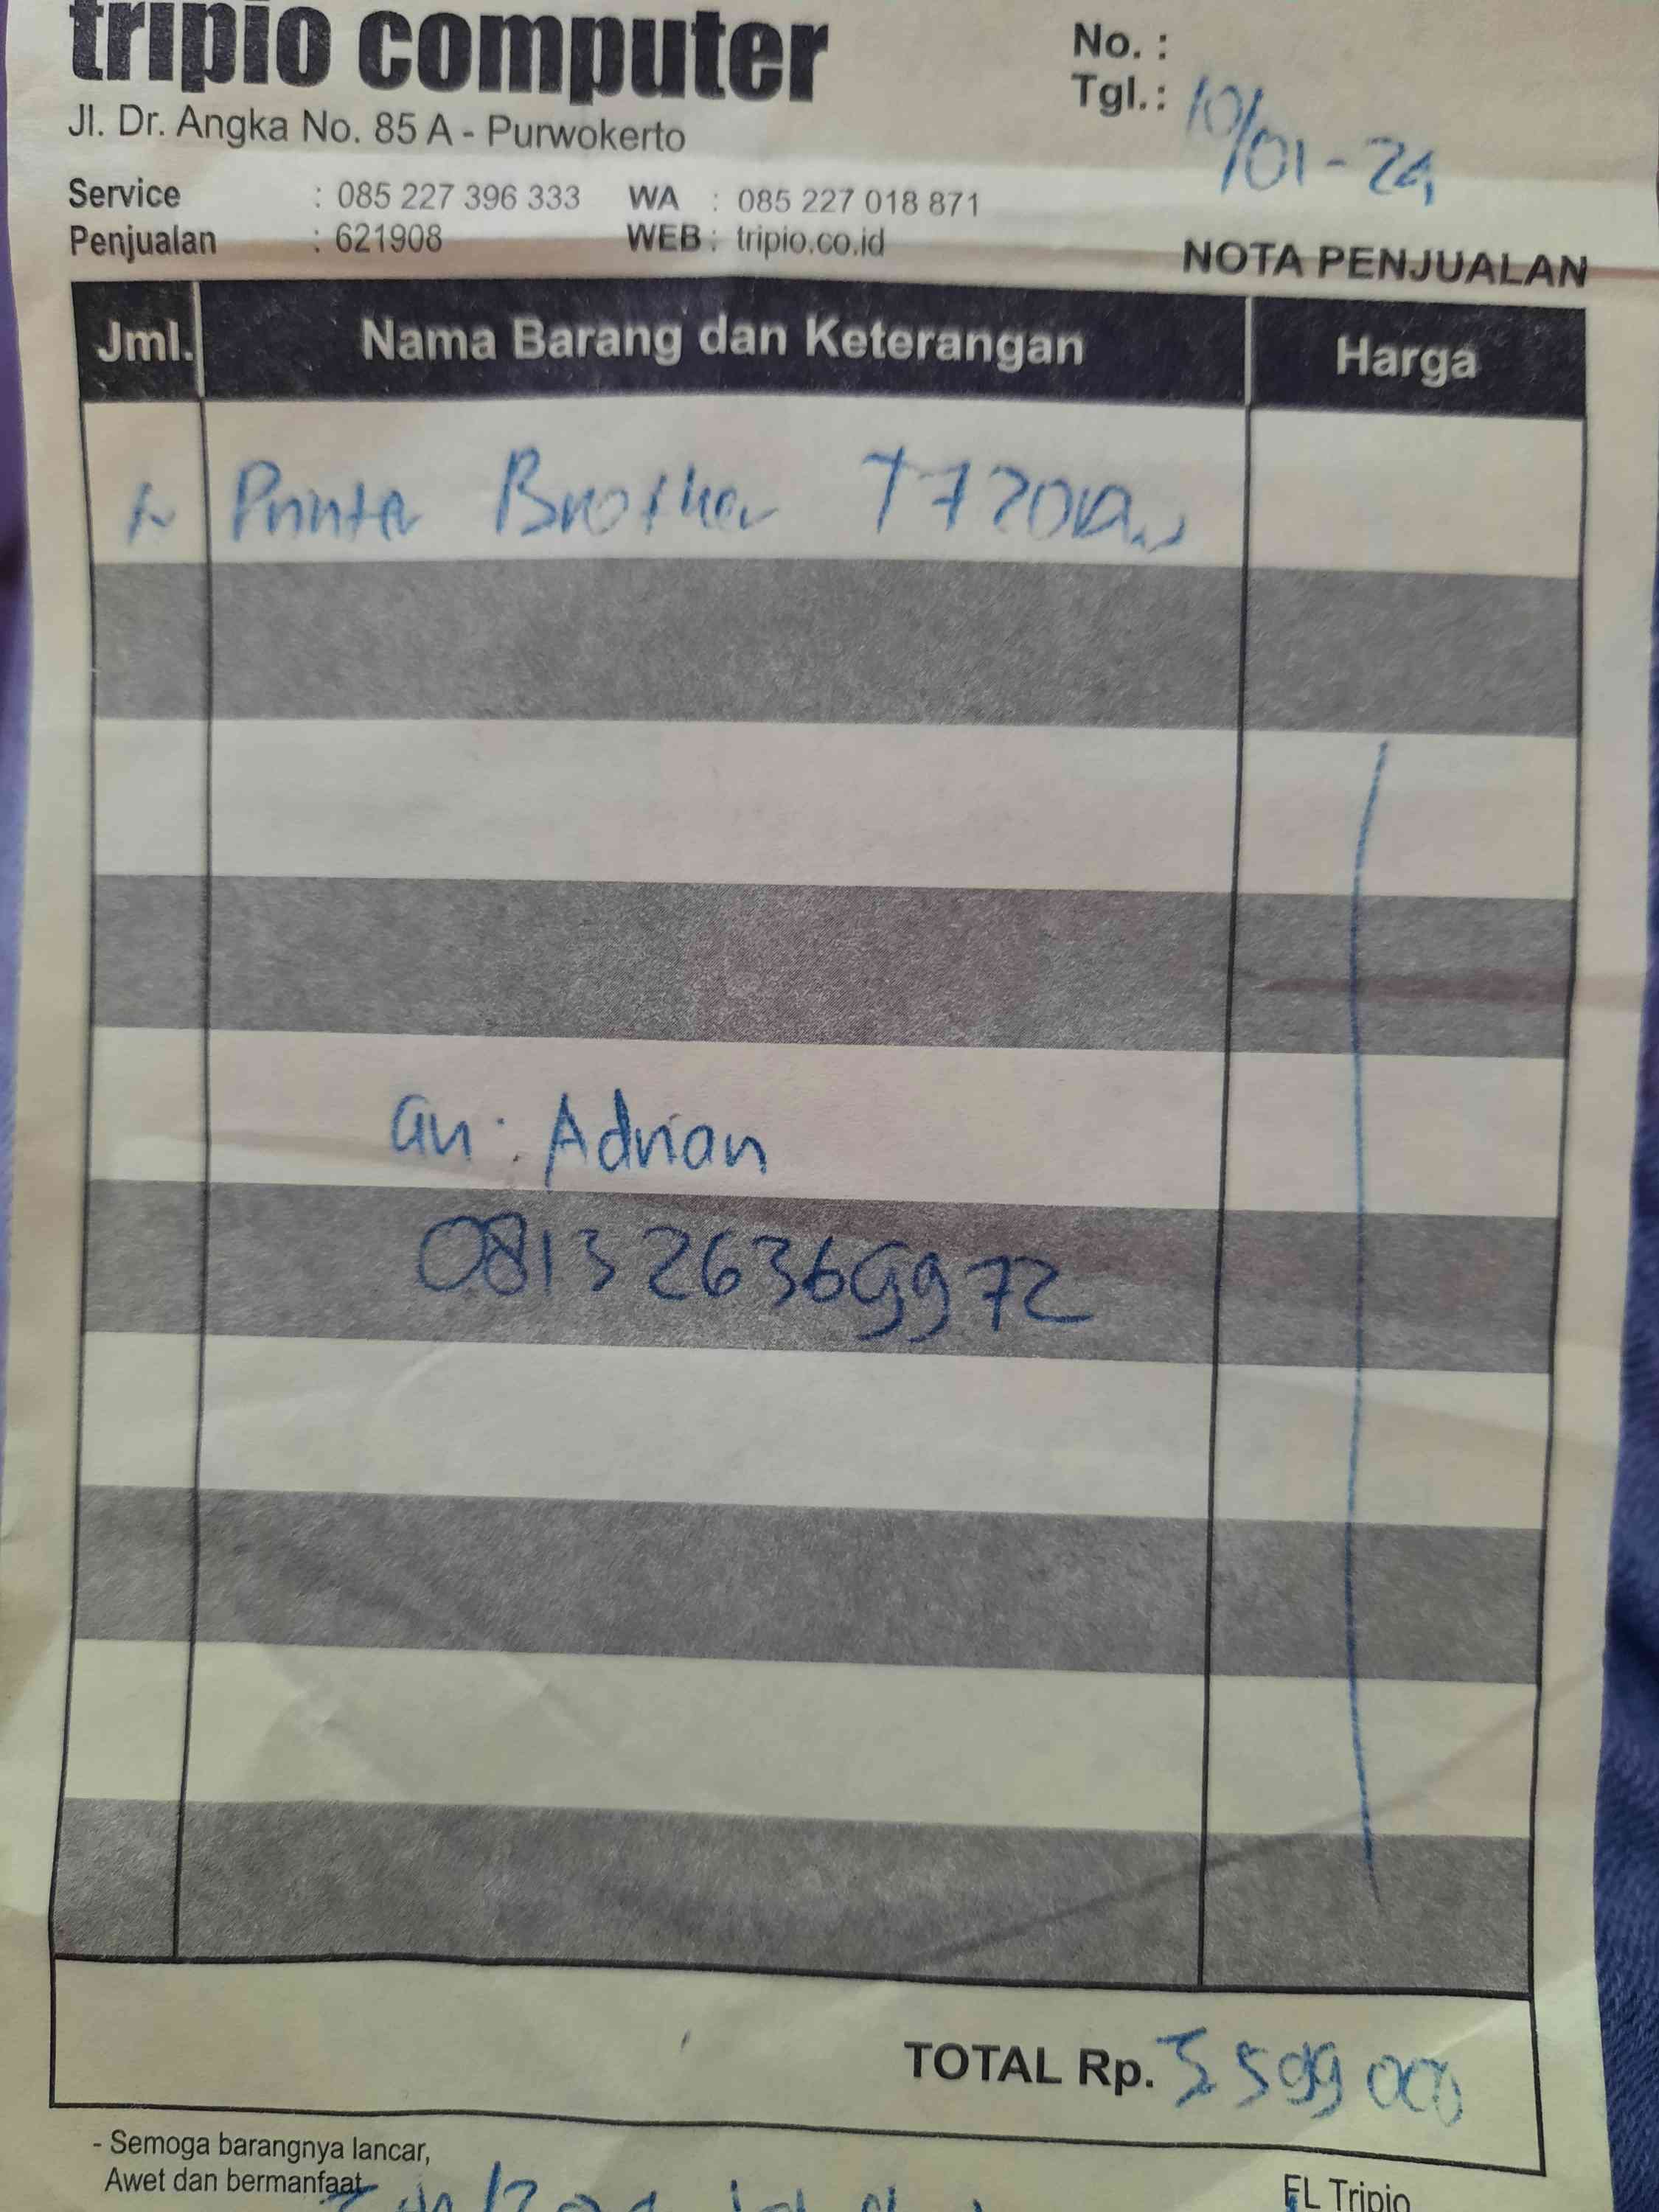 tripio computer
Jl. Dr. Angka No. 85 A - Purwokerto
No. :
Tgl. : 10/01-24
Service : 085 227 396 333 WA : 085 227 018 871
Penjualan : 621908 WEB : tripio.co.id
NOTA PENJUALAN
Jml. Nama Barang dan Keterangan Harga
Printer Brother T720DW
an : Adrian
081326369972
TOTAL Rp. 3599000
- Semoga barangnya lancar,
Awet dan bermanfaat
FL Tripio